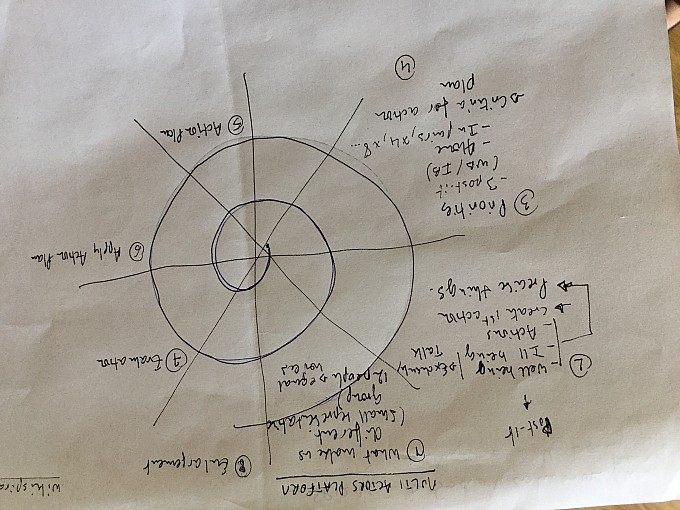 MULTI ACTORS PLATFORM
Wikispira
① What make us
different.
(small representative
group)
12 people → equal
voices
Post-it
②
- Well being
- Ill being
- Actions
Talk
Create 1st action
Precise things.
③ Priorities
- 3 post-it
(WB/IB)
- Alone
- In pairs, x4, x8...
④
Criteria for action
plan
⑤ Action Plan
⑥ Apply Action Plan
⑦ Evaluation
⑧ Enlargement